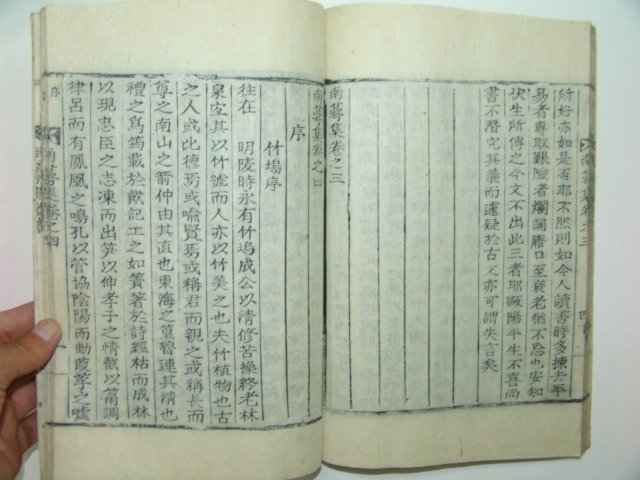 所好亦如是否耶不然則如今人讀書時多揀去平
易者專取艱險者爛誦膽口至衰老猶不忘也安知
伏生所傳之今文不出此三者耶歐陽平生不喜尚
書不潛究其義而遽疑於古文亦可謂失言矣
南蕚集卷之三
南蕚集卷之四
序
竹塢序
往在 明陵時永有竹塢成公以清修苦操終老林
泉室其以竹號而人亦以竹美之也夫竹植物也古
之人或比德焉或喩賢焉或稱君而親之或稱長而
尊之南山之箭仲由其直也東海之篁魯連其清也
禮之爲筠載於戴記工之如簀著於詩經枯而成林
以現忠臣之志凍而出笋以伸孝子之情截以筩調
律呂而有鳳凰之鳴孔以管協陰陽而動葭莩之噓